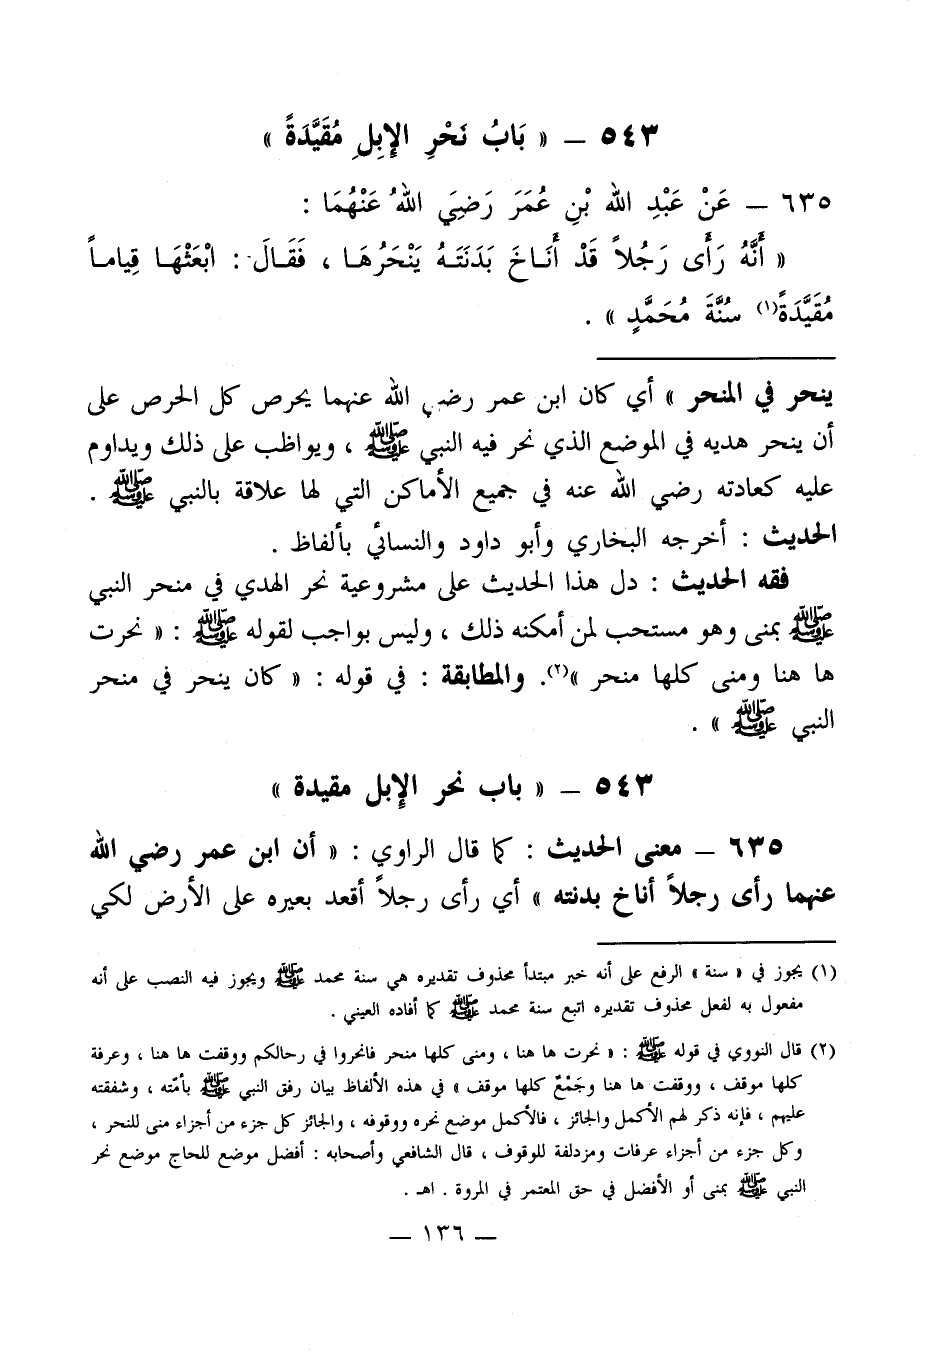 ٥٤٣ – « بَابُ نَحْرِ الإِبِلِ مُقَيَّدَةً »
٦٣٥ – عَنْ عَبْدِ اللهِ بْنِ عُمَرَ رَضِيَ اللهُ عَنْهُمَا :
« أَنَّهُ رَأَى رَجُلاً قَدْ أَنَاخَ بَدَنَتَهُ يَنْحَرُهَا ، فَقَالَ : ابْعَثْهَا قِيَاماً
مُقَيَّدَةً(١) سُنَّةَ مُحَمَّدٍ » .
ينحر في المنحر » أي كان ابن عمر رضي الله عنهما يحرص كل الحرص على
أن ينحر هديه في الموضع الذي نحر فيه النبي ﷺ ، ويواظب على ذلك ويداوم
عليه كعادته رضي الله عنه في جميع الأماكن التي لها علاقة بالنبي ﷺ .
الحديث : أخرجه البخاري وأبو داود والنسائي بألفاظ .
فقه الحديث : دل هذا الحديث على مشروعية نحر الهدي في منحر النبي
ﷺ بمنى وهو مستحب لمن أمكنه ذلك ، وليس بواجب لقوله ﷺ : « نحرت
ها هنا ومنى كلها منحر »(٢). والمطابقة : في قوله : « كان ينحر في منحر
النبي ﷺ » .
٥٤٣ – « باب نحر الإبل مقيدة »
٦٣٥ – معنى الحديث : كما قال الراوي : « أن ابن عمر رضي الله
عنهما رأى رجلاً أناخ بدنته » أي رأى رجلاً أقعد بعيره على الأرض لكي
(١) يجوز في « سنة » الرفع على أنه خبر مبتدأ محذوف تقديره هي سنة محمد ﷺ ويجوز فيه النصب على أنه
مفعول به لفعل محذوف تقديره اتبع سنة محمد ﷺ كما أفاده العيني .
(٢) قال النووي في قوله ﷺ : « نحرت ها هنا ، ومنى كلها منحر فانحروا في رحالكم ووقفت ها هنا ، وعرفة
كلها موقف ، ووقفت ها هنا وجَمْعٌ كلها موقف » في هذه الألفاظ بيان رفق النبي ﷺ بأمّته ، وشفقته
عليهم ، فإنه ذكر لهم الأكمل والجائز ، فالأكمل موضع نحره ووقوفه ، والجائز كل جزء من أجزاء منى للنحر ،
وكل جزء من أجزاء عرفات ومزدلفة للوقوف ، قال الشافعي وأصحابه : أفضل موضع للحاج موضع نحر
النبي ﷺ بمنى أو الأفضل في حق المعتمر في المروة . اهـ .
– ١٣٦ –